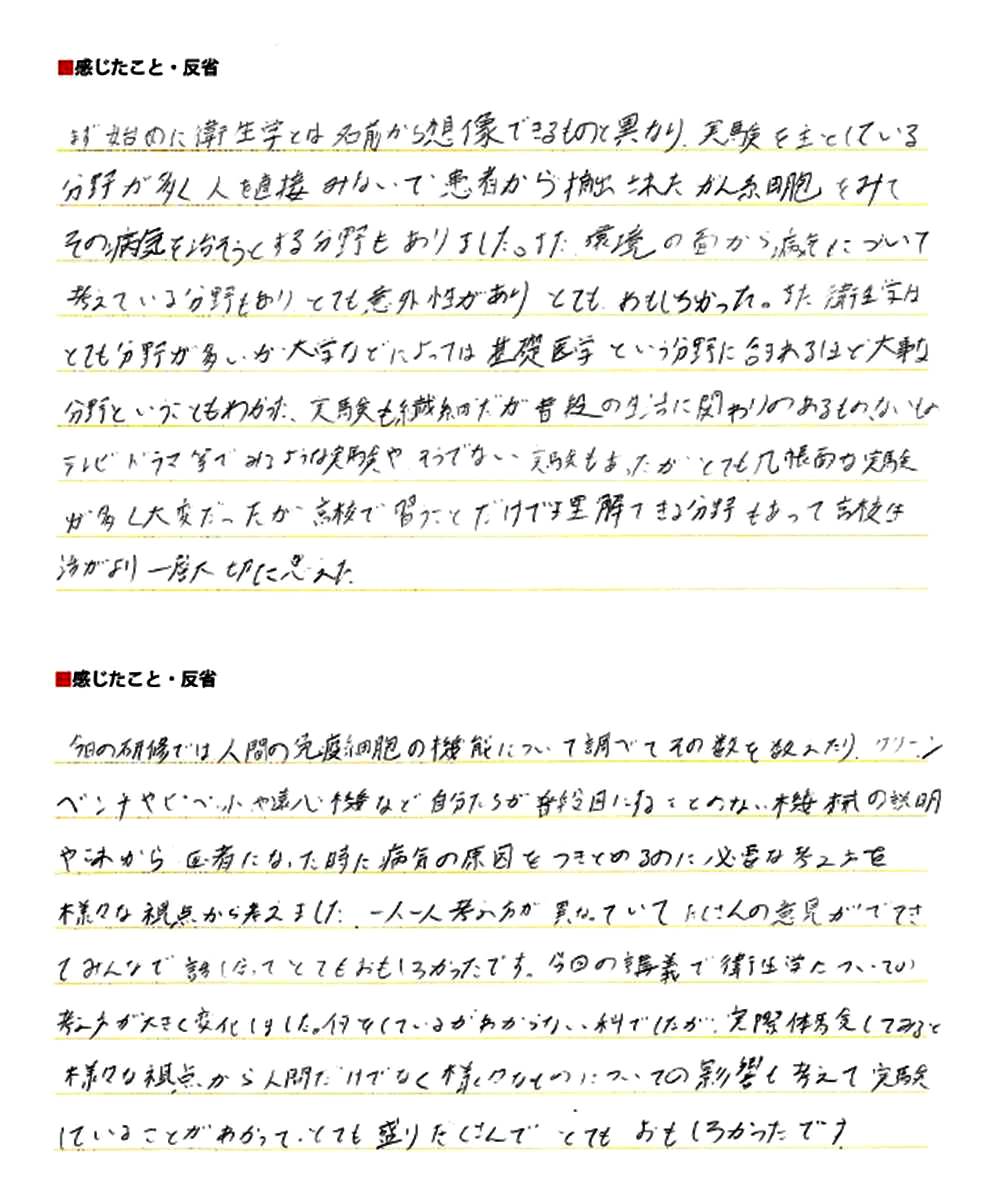 ■感じたこと・反省
まず始めに衛生学とは名前から想像できるものと異なり、実験を主としている
分野が多く人を直接みないで患者から摘出されたがん細胞をみて
その病気を治そうとする分野もありました。また環境の面から病気について
考えている分野もありとても意外性がありとてもおもしろかった。また衛生学は
とても分野が多いが大学などによっては基礎医学という分野に含まれるほど大事な
分野ということもわかった、実験も繊細だが普段の生活に関わりのあるもの、ないもの
テレビドラマ等でみるような実験やそうでない実験もあったがとても几帳面な実験
が多く大変だったが高校で習うことだけで理解できる分野もあって高校生
活がより一層大切に思えた
■感じたこと・反省
今日の研修では人間の免疫細胞の機能について調べてその数を数えたり、クリーン
ベンチやピペット や遠心機など自分たちが普段目にすることのない機械の説明
やこれから医者になった時に病気の原因をつきとめるのに必要な考え方を
様々な視点から考えました、一人一人考え方が異なっていてたくさんの意見がでてき
てみんなで話し合ってとてもおもしろかったです。今回の講義で衛生学についての
考え方が大きく変化しました。何をしているかわからない科でしたが、実際体験してみると
様々な視点から人間だけでなく様々なものについての影響も考えて実験
していることがわかって、とても盛りだくさんでとてもおもしろかったです